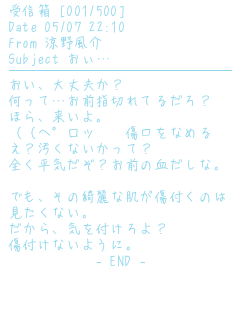 受信箱 [001/500]
Date 05/07 22:10
From 涼野風介
Subject おい…
おい、大丈夫か？
何って…お前指切れてるだろ？
ほら、来いよ。
（（ペロッ　　傷口をなめる
え？汚くないかって？
全く平気だぞ？お前の血だしな。
でも、その綺麗な肌が傷付くのは
見たくない。
だから、気を付けろよ？
傷付けないように。
- END -